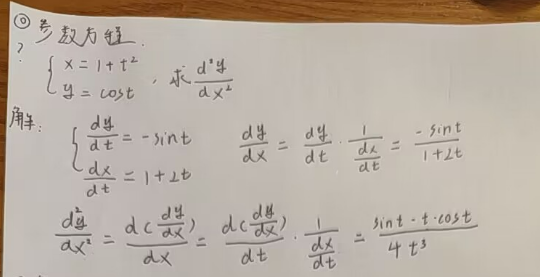 ◎ 参数方程.
?
{ x = 1 + t²
{ y = cost , 求 d²y/dx²
解: { dy/dt = -sint
{ dx/dt = 1+2t
dy/dx = dy/dt · 1/(dx/dt) = -sint/(1+2t)
d²y/dx² = d(dy/dx)/dx = d(dy/dx)/dt · 1/(dx/dt) = (sint - t·cost)/4t³